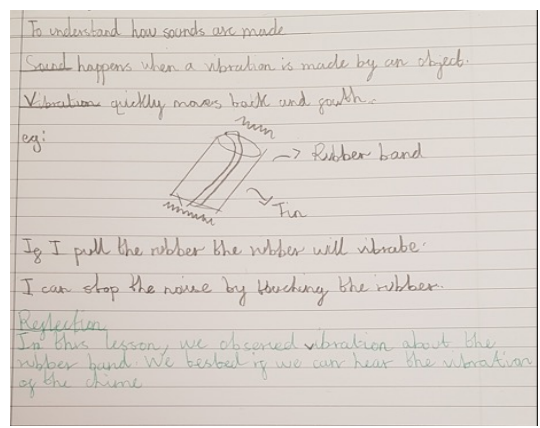 To understand how sounds are made
Sound happens when a vibration is made by an object.
Vibration quickly moves back and fouth.
eg:
Rubber band
Tin
If I pull the rubber the rubber will vibrate.
I can stop the noise by touching the rubber.
Reflection
In this lesson, we observed vibration about the
rubber band. We tested if we can hear the vibration
of the chime